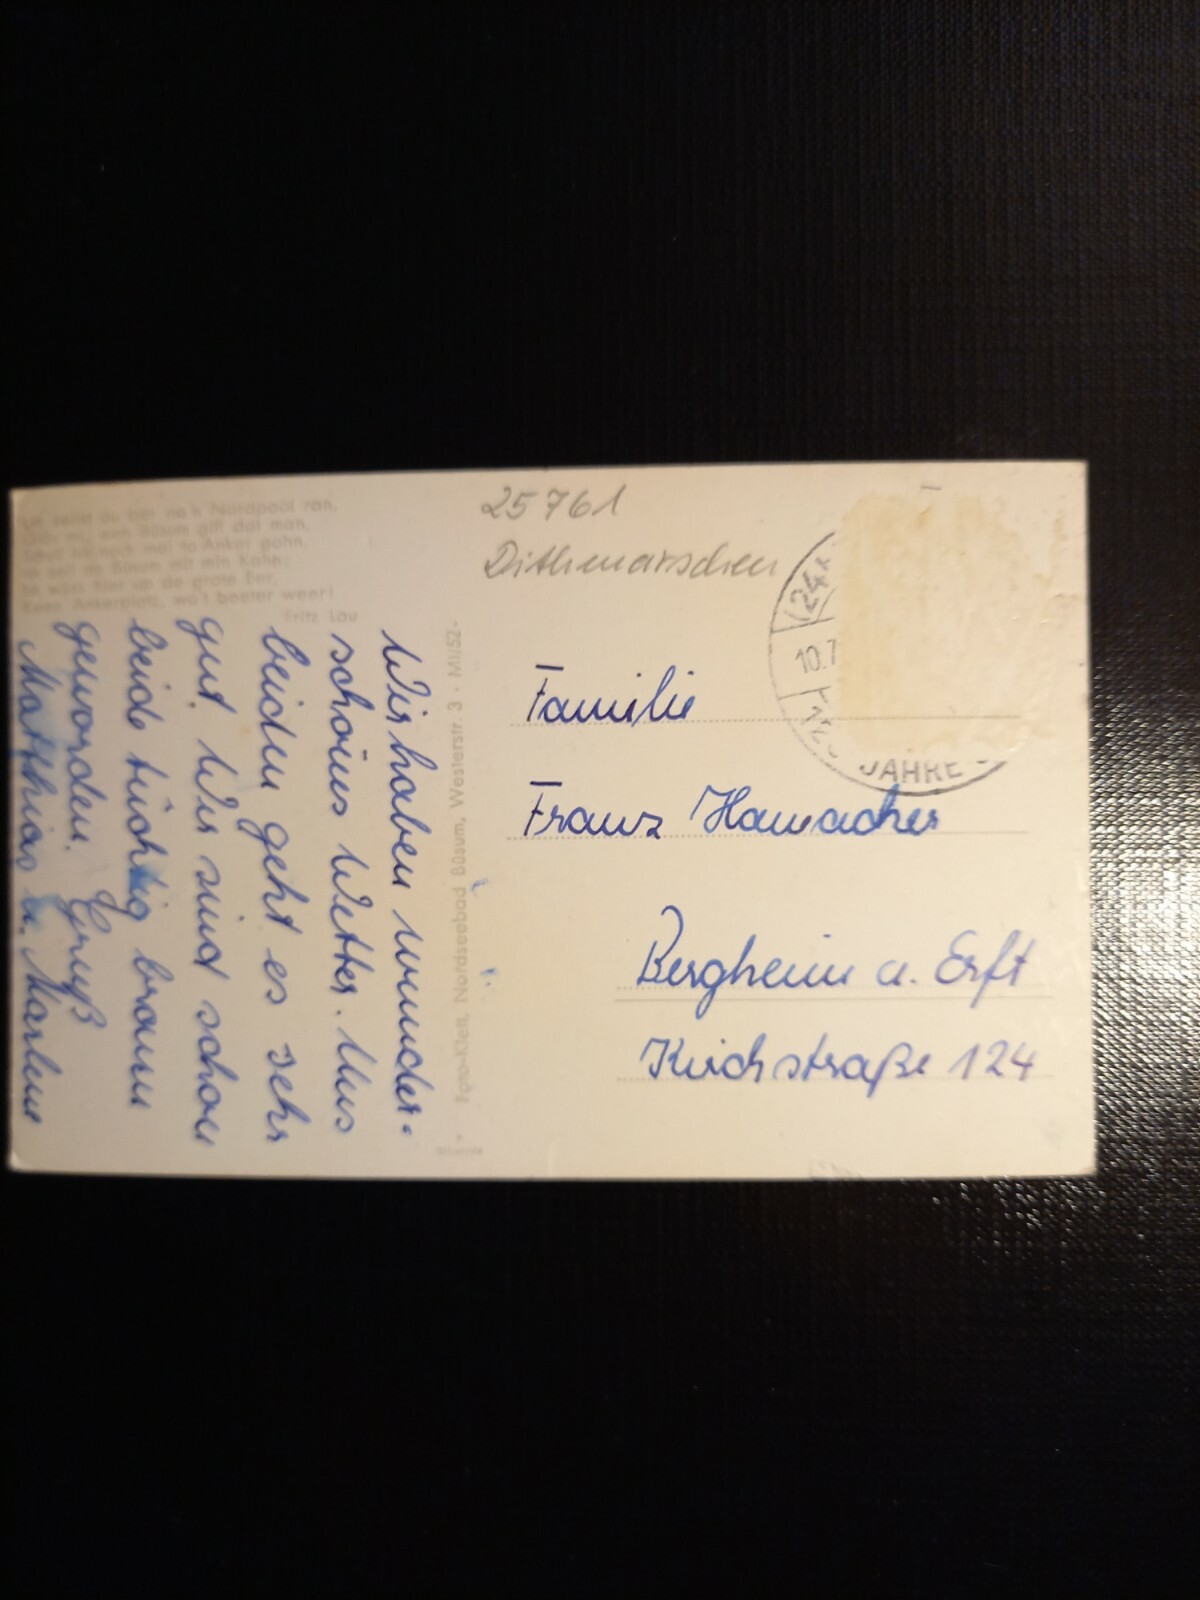 du hier na'n Nordpool ran,
Büsum gift dat man,
noch mal to Anker gahn.
Büsum mit min Kahn;
hier up de grote Eer,
Keen Ankerplatz, wo't beeter weer!
Fritz Lau
Wir haben wunder-
schönes Wetter. Uns
beiden geht es sehr
gut. Wir sind schon
beide tüchtig braun
geworden. Gruß
Matthias u. Marlene
Foto-Klett, Nordseebad Büsum, Westerstr. 3 · MI/52-
25761
Dithmarschen
(24
10.7
JAHRE
Familie
Franz Hamacher
Bergheim a. Erft
Kirchstraße 124